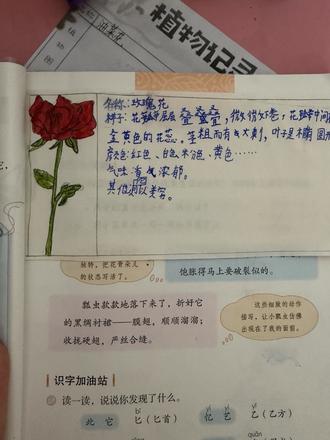 植物记录
油菜花
名称:玫瑰花
样子:花瓣层层叠叠叠,微微卷,花瓣中间
金黄色的花蕊。茎粗而有大刺,叶子是椭圆形
颜色:红色、白色、黄色……
气味:香气浓郁。
其他:
独特,把花骨朵儿
的状态写活了。
他胀得马上要破裂似的。
瓢虫款款地落下来了,折好它
的黑绸衬裙——膜翅,顺顺溜溜;
收拢硬翅,严丝合缝。
这些细致的动作
描写,让小瓢虫仿佛
出现在了我的面前。
识字加油站
读一读,说说你发现了什么。
bǐ yì yǐ
此 它 匕(匕首) 忆 艺 乙(乙方)
quǎn